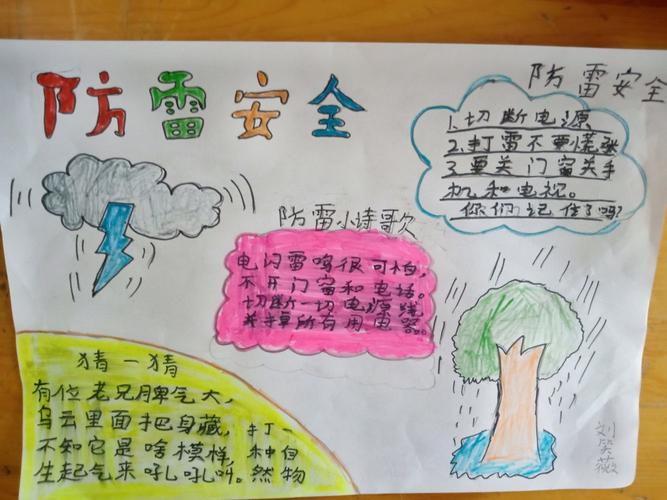 防雷安全
防雷安全
1.切断电源
2.打雷不要慌张
3.要关门窗关手
机和电视。
你们记住了吗?
防雷小诗歌
电闪雷鸣很可怕,
不开门窗和电话。
切断一切电源线
关掉所有用电器。
猜一猜
有位老兄脾气大,
乌云里面把身藏,
不知它是啥模样,
生起气来吼吼叫。
打一
种自
然物
刘笑薇